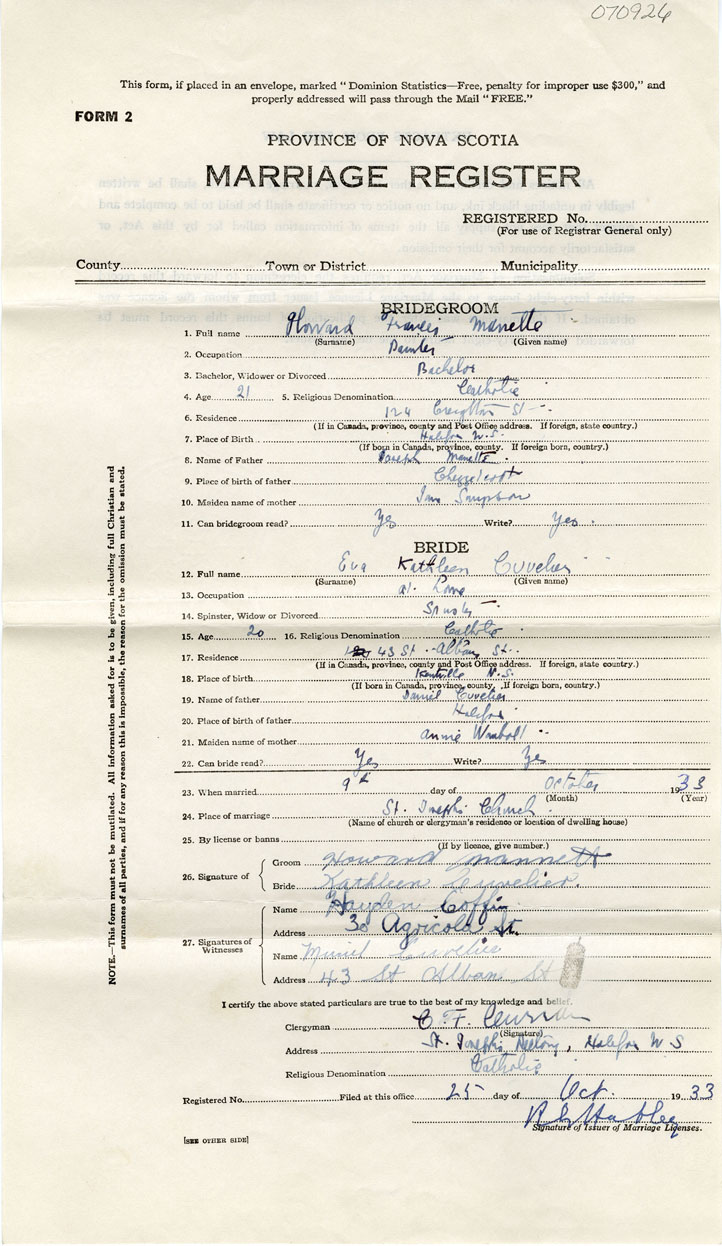 070926
This form, if placed in an envelope, marked "Dominion Statistics—Free, penalty for improper use $300," and
properly addressed will pass through the Mail "FREE."
FORM 2
PROVINCE OF NOVA SCOTIA
MARRIAGE REGISTER
REGISTERED No.
(For use of Registrar General only)
County Town or District Municipality
BRIDEGROOM
1. Full name Howard Francis Manette
(Surname) (Given name)
2. Occupation
3. Bachelor, Widower or Divorced Bachelor
4. Age 21 5. Religious Denomination Catholic
6. Residence 124 Creighton St
(If in Canada, province, county and Post Office address. If foreign, state country.)
7. Place of Birth Halifax N.S.
(If born in Canada, province, county. If foreign born, country.)
8. Name of Father Joseph Manette
9. Place of birth of father Chezzetcook
10. Maiden name of mother Simpson
11. Can bridegroom read? Yes Write? Yes.
BRIDE
12. Full name Eva Kathleen Cuvelier
(Surname) (Given name)
13. Occupation at Home
14. Spinster, Widow or Divorced
15. Age 20 16. Religious Denomination Catholic
17. Residence 43 St. Alban St.
(If in Canada, province, county and Post Office address. If foreign, state country.)
18. Place of birth Kentville N.S.
(If born in Canada, province, county. If foreign born, country.)
19. Name of father Daniel Cuvelier
20. Place of birth of father Halifax
21. Maiden name of mother Annie
22. Can bride read? Yes Write? Yes
23. When married 9th day of October 1933
(Month) (Year)
24. Place of marriage St. Joseph's Church
(Name of church or clergyman's residence or location of dwelling house)
25. By license or banns
(If by licence, give number.)
26. Signature of
Groom Howard Mannette
Bride Kathleen Cuvelier.
27. Signatures of Witnesses
Name Hayden Coffin
Address 30 Agricola St.
Name Muriel Cuvelier
Address 43 St Alban St
I certify the above stated particulars are true to the best of my knowledge and belief.
Clergyman C. F. Curran
(Signature)
Address St. Joseph's Rectory, Halifax N S
Religious Denomination Catholic
Registered No. Filed at this office 25 day of Oct. 1933
Signature of Issuer of Marriage Licenses.
[SEE OTHER SIDE]
NOTE.—This form must not be mutilated. All information asked for is to be given, including full Christian and
surnames of all parties, and if for any reason this is impossible, the reason for the omission must be stated.